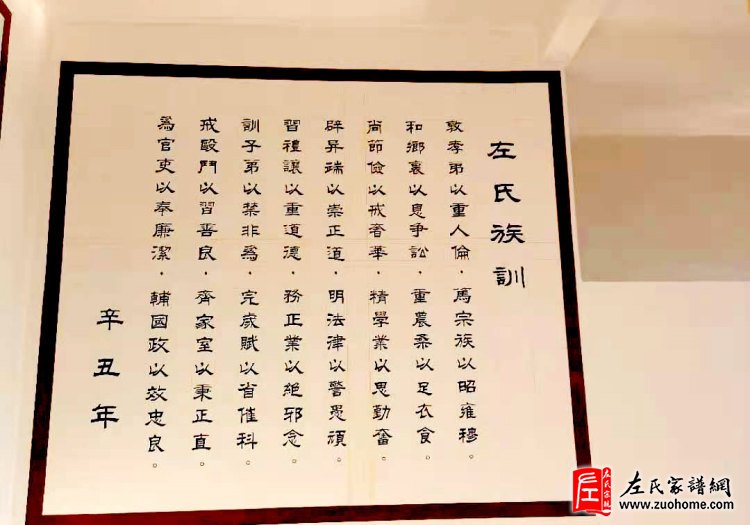 左氏族訓
敦孝弟以重人倫，篤宗族以昭雍穆。
和鄉裏以息爭訟，重農桑以足衣食。
尚節儉以戒奢華，精學業以思勤奮。
辟异端以崇正道，明法律以警愚頑。
習禮讓以重道德，務正業以絕邪念。
訓子弟以禁非為，完成賦以省催科。
戒毆鬥以習善良，齊家室以秉正直。
為官吏以奉廉潔，輔國政以效忠良。
辛丑年
左氏宗親
左氏家譜網
www.zuohome.com